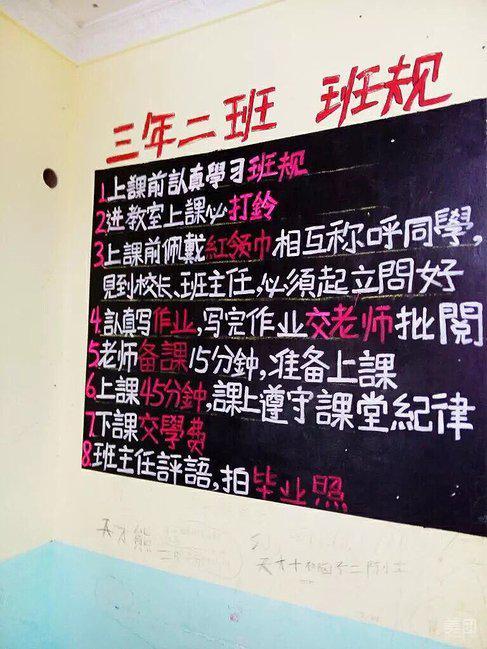 三年二班 班规
1.上課前認真學习班规
2.进教室上課必打鈴
3.上課前佩戴紅领巾相互称呼同學,
見到校长、班主任,必須起立問好
4.認真写作业,写完作业交老师批閱
5.老师备課15分鐘,准备上課
6.上課45分鐘,課上遵守課堂紀律
7.下課交學费
8.班主任評語,拍毕业照
天才熊
美团